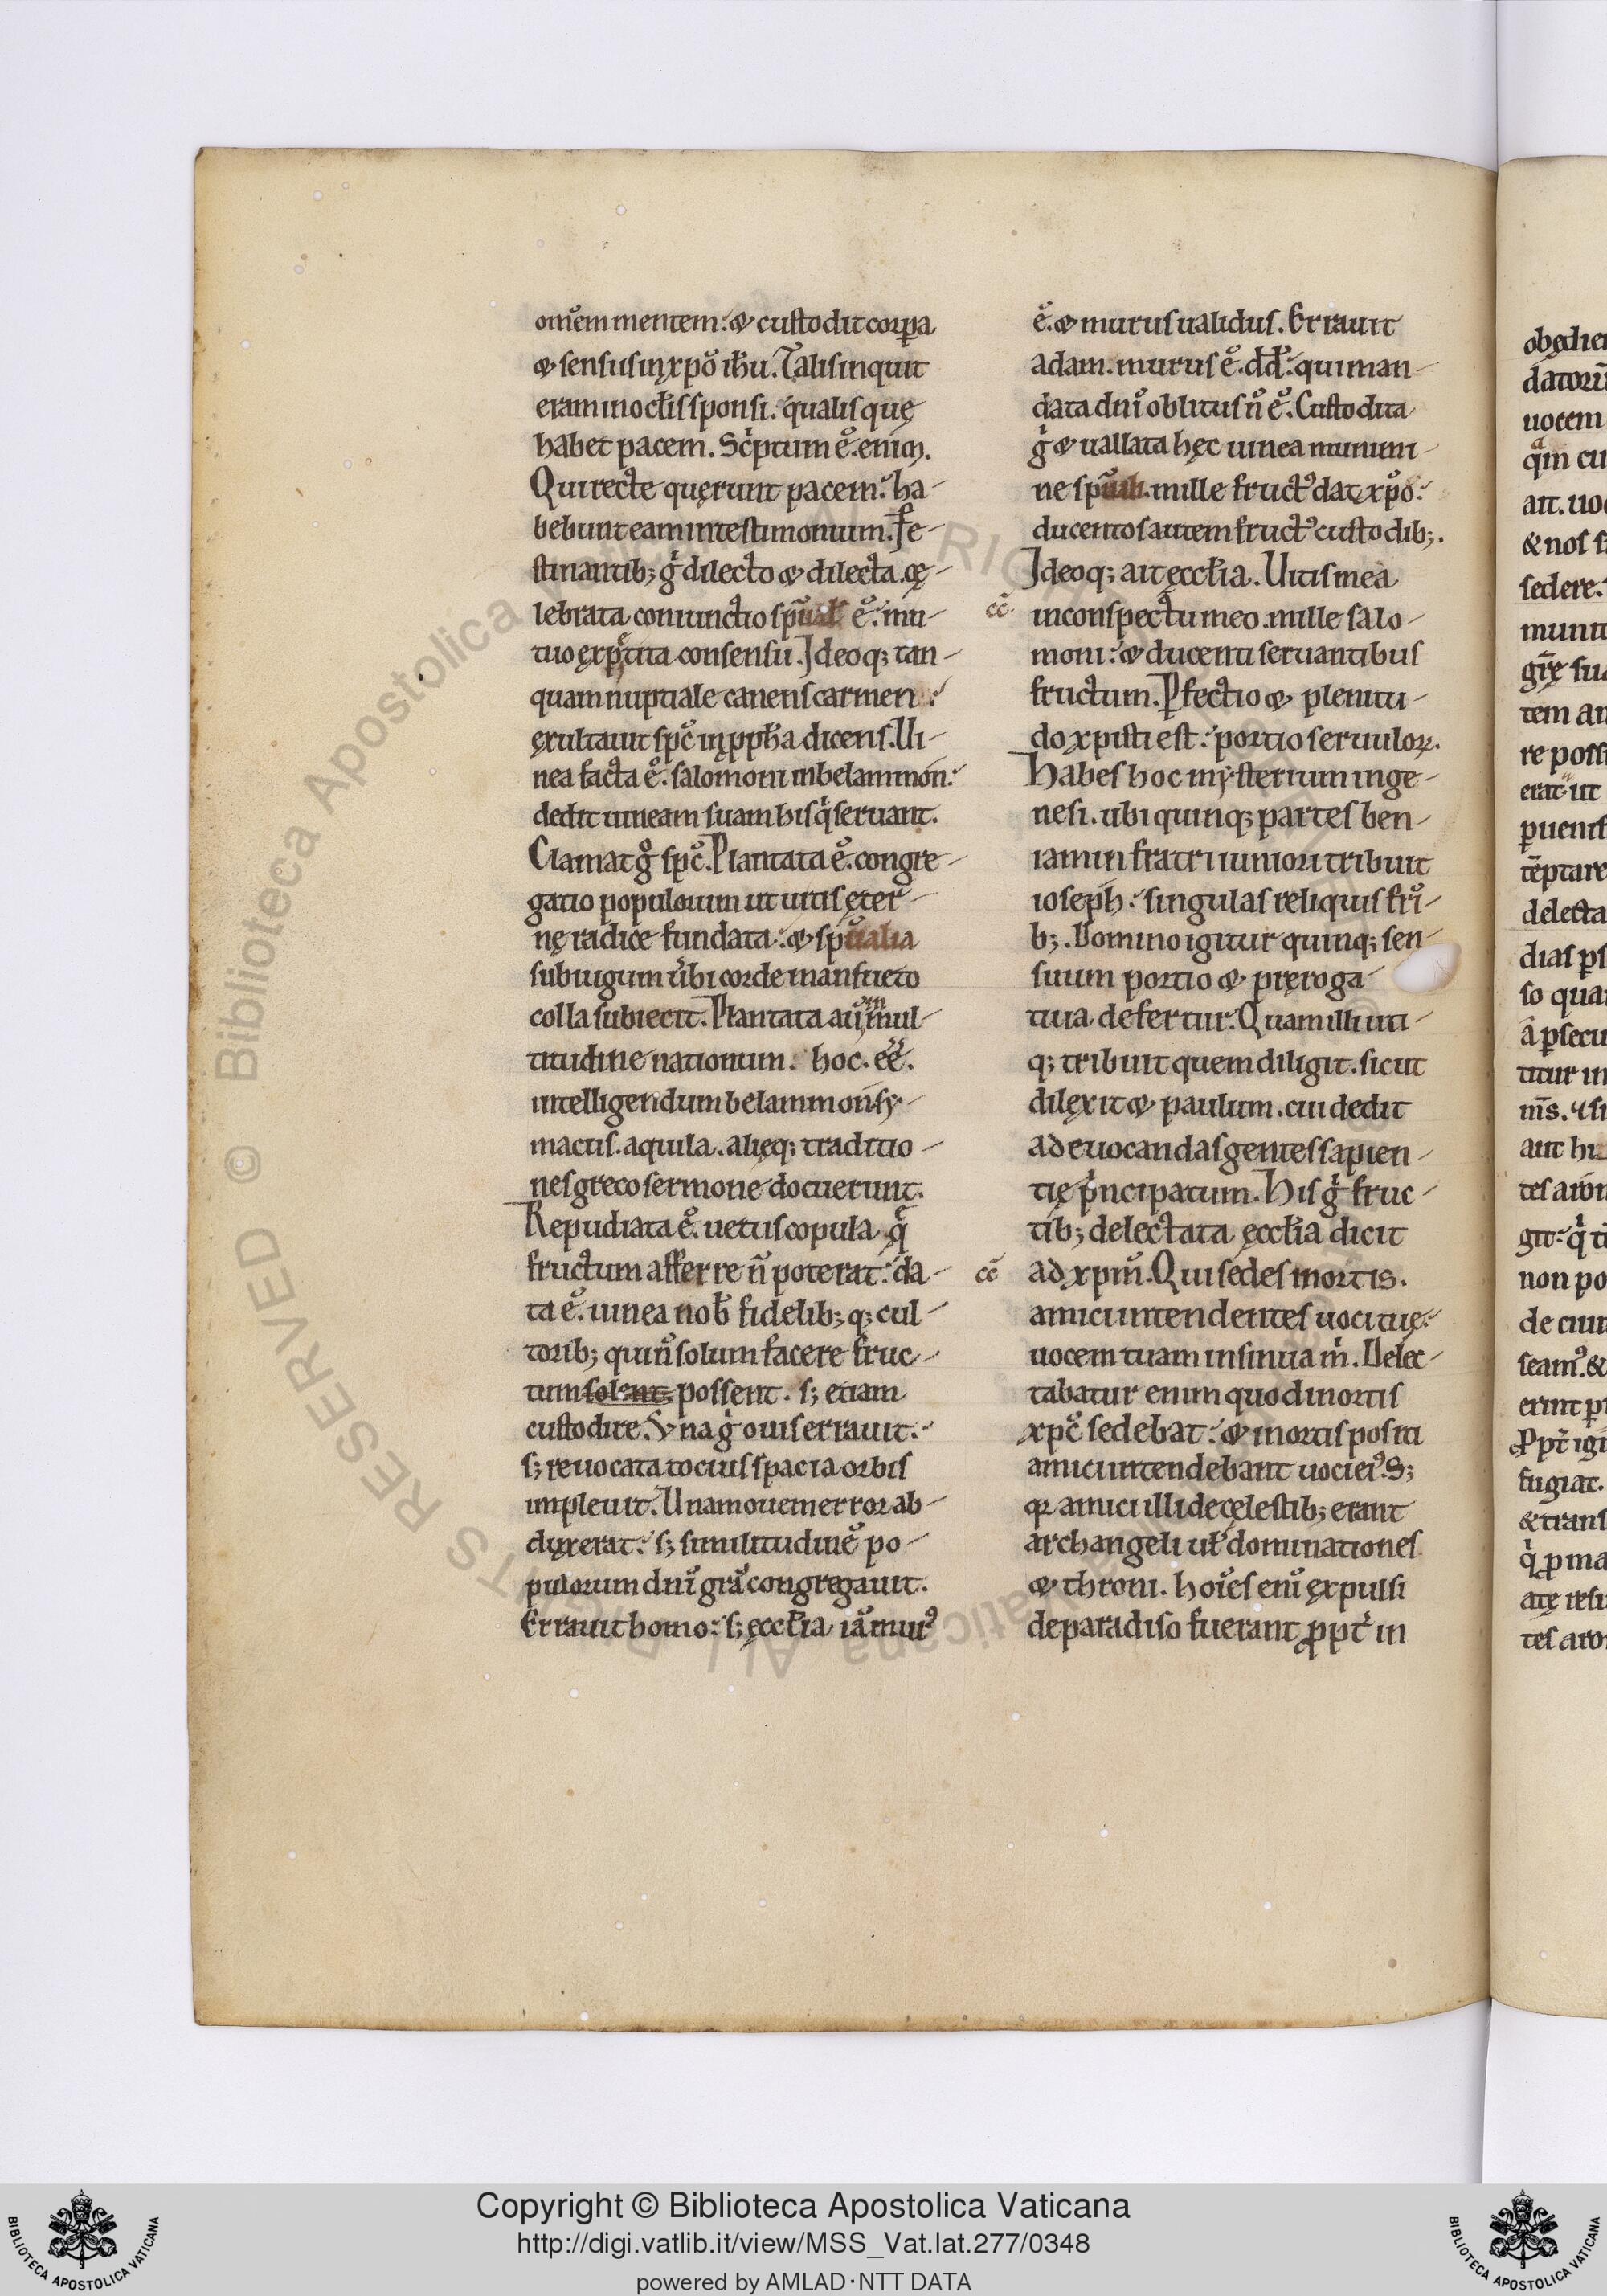 om̅em mentem: & custodit corpa
& sensus in xpō ihū. Talis inquit
eram in oct̅is sponsi. qualis quę
habet pacem. Scͥptum ē. enim.
Qui recte querunt pacem: ha-
bebunt eam in testimonium. Fe-
stinantib; gͥ dilecto & dilecta. cę-
lebrata coniunctio spūal ē: mu-
tuo exptita consensu. Ideoq; tan-
quam nuptiale canens carmen:
exultauit spc̅ in ppha dicens. Ui-
nea facta ē. salomoni in belammon:
dedit uineam suam his qͥ seruant.
Clamat gͦ spc̅. Plantata ē. congre-
gatio populorum ut uitis ęter-
nę radice fundata: & spūalia
sub iugum ůbi corde mansueto
colla subiecit. Plantata aū in mul-
titudine nationum. hoc. ēē.
intelligendum belammon sy-
macus. aquila. alięq; traditio-
nes greco sermone docuerunt.
Repudiata ē. uetus copula. qͤ
fructum afferre n̅ poterat: da-
ta ē. uinea nob̅ fidelib; q; cul-
torib; qui n̅ solum facere fruc-
tum possent. s; etiam
custodire. Vna gͥ ouis errauit:
s; reuocata tocius spacia orbis
impleuit. Unam ouem error ab-
duxerat: s; similitudinē po-
pulorum dnī gr̅a congregauit.
Errauit homo: s; ęcct̅ia iā murꝰ
ē. & murus ualidus. Errauit
adam. murus ē. dd̅: qui man-
data dnī oblitus n̅ ē. Custodita
gͥ & uallata hęc uinea munimi-
ne spūali. mille fructꝰ dat xpō:
ducentos autem fructꝰ custodib;.
Ideoq; ait ęcct̅ia. Uitis mea
cc̅. in conspectu meo. mille salo-
moni: & ducenti seruantibus
fructum. Pfectio & plenitu-
do xpisti est: portio seruuloꝝ.
Habes hoc mysterium in ge-
nesi. ubi quinq; partes ben-
iamin fratri iuniori tribuit
ioseph: singulas reliquis frī-
b;. Domino igitur quinq; sen-
suum portio & pręroga-
tiua defertur. Quam illi uti-
q; tribuit quem diligit. sicut
dilexit & paulum. cui dedit
ad euocandas gentes sapien-
tię pͥncipatum. His gͥ fruc-
tib; delectata ęcct̅ia dicit
cc̅ ad xpm̅. Qui sedes in ortis.
amici intendentes uoci tuę:
uocem tuam insinua mͥ. Delec-
tabatur enim quod in ortis
xpc̅ sedebat: & in ortis positi
amici intendebant uoci eiꝰ. S;
qꝛ amici illi de cęlestib; erant
archangeli ut̅ dominationes
& throni. hoīes enī expulsi
de paradiso fuerant ꝓptͥ in
obędien
datorū
uocem
qͣm cu
ait. uoc
& nos s
sedere:
munit
grę sua
tem an
re possi
erat ut
ꝑuenis
tēptare
delecta
dias ꝑs
so quar
a ꝑsecu
titur in
m̅s. & si
aut hi
tes aron
git: qͥ ti
non po
de ciui
seamꝰ. &
erint ꝑ
Ꝓptͥ igi
fugiat.
& trans
qͥ ꝑ ma
ate resu
tes aro
© Biblioteca Apostolica Vaticana ALL RIGHTS RESERVED
Copyright © Biblioteca Apostolica Vaticana
http://digi.vatlib.it/view/MSS_Vat.lat.277/0348
powered by AMLAD·NTT DATA
BIBLIOTECA APOSTOLICA VATICANA
BIBLIOTECA APOSTOLICA VATICANA